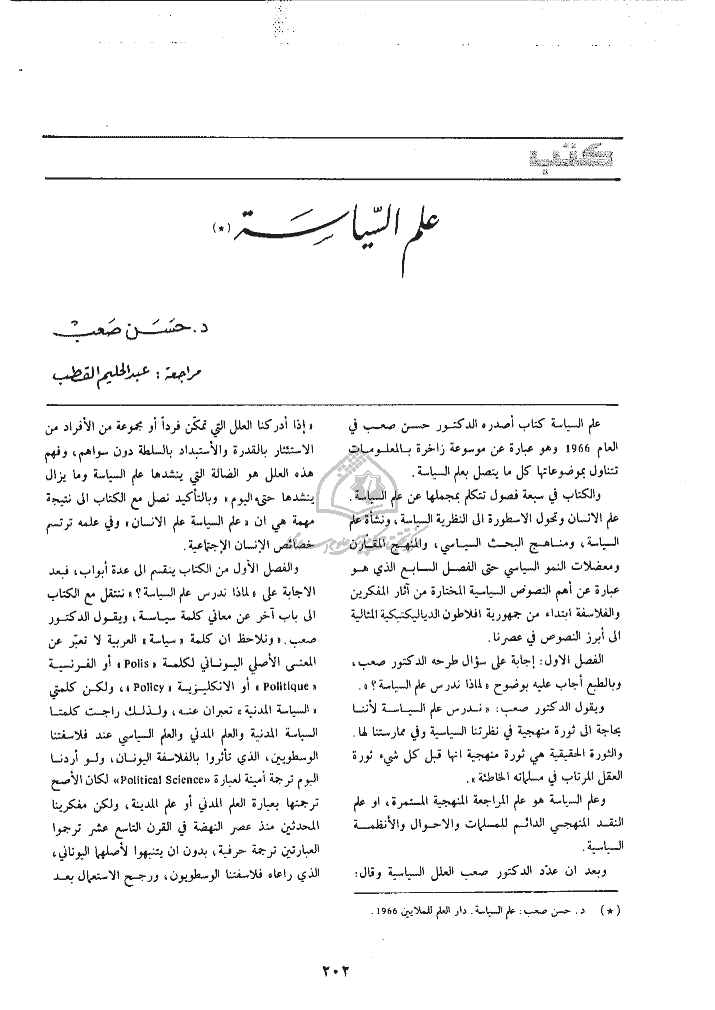 كتب
علم السّياسَة (*)
د. حسَن صَعب
مراجعة : عبدالحليم القطب
علم السياسة كتاب أصدره الدكتور حسن صعب في
العام 1966 وهو عبارة عن موسوعة زاخرة بالمعلومات
تتناول بموضوعاتها كل ما يتصل بعلم السياسة.
والكتاب في سبعة فصول تتكلم بمجملها عن علم السياسة.
علم الانسان وتحول الاسطورة الى النظرية السياسة، ونشأة علم
السياسة، ومناهج البحث السياسي، والمنهج المقارن
ومعضلات النمو السياسي حتى الفصل السابع الذي هو
عبارة عن أهم النصوص السياسية المختارة من آثار المفكرين
والفلاسفة ابتداء من جمهورية افلاطون الديالكتيكية المثالية
الى أبرز النصوص في عصرنا.
الفصل الاول: إجابة على سؤال طرحه الدكتور صعب،
وبالطبع أجاب عليه بوضوح « لماذا ندرس علم السياسة؟ ».
ويقول الدكتور صعب: « ندرس علم السياسة لأننا
بحاجة الى ثورة منهجية في نظرتنا السياسية وفي ممارستنا لها.
والثورة الحقيقية هي ثورة منهجية انها قبل كل شيء ثورة
العقل المرتاب في مسلماته الخاطئة ».
وعلم السياسة هو علم المراجعة المنهجية المستمرة، او علم
النقد المنهجي الدائم للمسلمات والاحوال والأنظمة
السياسية.
وبعد ان عدّد الدكتور صعب العلل السياسية وقال:
(*) د. حسن صعب: علم السياسة. دار العلم للملايين 1966.
« إذا أدركنا العلل التي تمكّن فرداً أو مجموعة من الأفراد من
الاستئثار بالقدرة والأستبداد بالسلطة دون سواهم، وفهم
هذه العلل هو الضالة التي ينشدها علم السياسة وما يزال
ينشدها حتى اليوم » وبالتأكيد نصل مع الكتاب الى نتيجة
مهمة هي ان « علم السياسة علم الانسان » وفي علمه ترتسم
خصائص الإنسان الإجتماعية.
والفصل الأول من الكتاب ينقسم الى عدة أبواب، فبعد
الاجابة على « لماذا ندرس علم السياسة؟ » ننتقل مع الكتاب
الى باب آخر عن معاني كلمة سياسة، ويقول الدكتور
صعب. « ونلاحظ ان كلمة « سياسة » العربية لا تعبّر عن
المعنى الأصلي اليوناني لكلمة « Polis » أو الفرنسية
« Politique » أو الانكليزية « Policy »، ولكن كلمتي
« السياسة المدنية » تعبران عنه، ولذلك راجت كلمتا
السياسة المدنية والعلم المدني والعلم السياسي عند فلاسفتنا
الوسطويين، الذي تأثروا بالفلاسفة اليونان، ولو أردنا
اليوم ترجمة أمينة لعبارة «Political Science» لكان الأصح
ترجمتها بعبارة العلم المدني أو علم المدينة، ولكن مفكرينا
المحدثين منذ عصر النهضة في القرن التاسع عشر ترجموا
العبارتين ترجمة حرفية، بدون ان يتنبهوا لأصلهما اليوناني،
الذي راعاه فلاسفتنا الوسطويون، ورجح الاستعمال بعد
٢٠٢